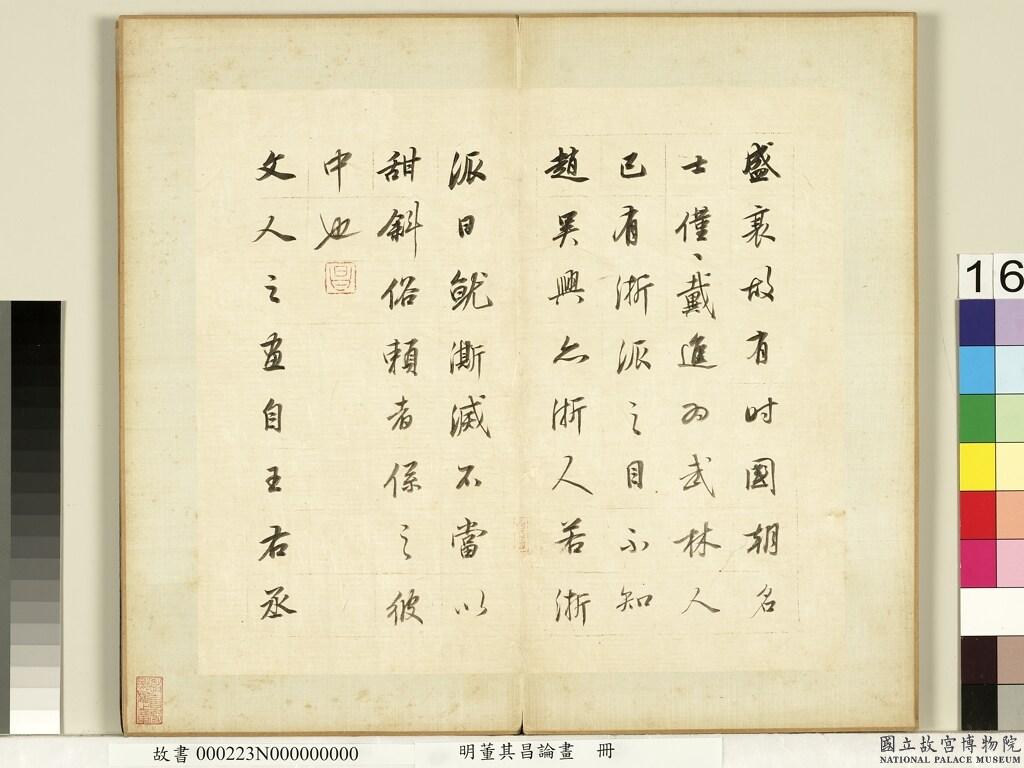 盛衰故有时國朝名
士僅、戴進為武林人
已有浙派之目不知
趙吴興亦浙人若浙
派日就澌滅不當以
甜斜俗賴者係之彼
中也
文人之畫自王右丞
16
故書 000223N000000000
明董其昌論畫 冊
國立故宮博物院
NATIONAL PALACE MUSEUM